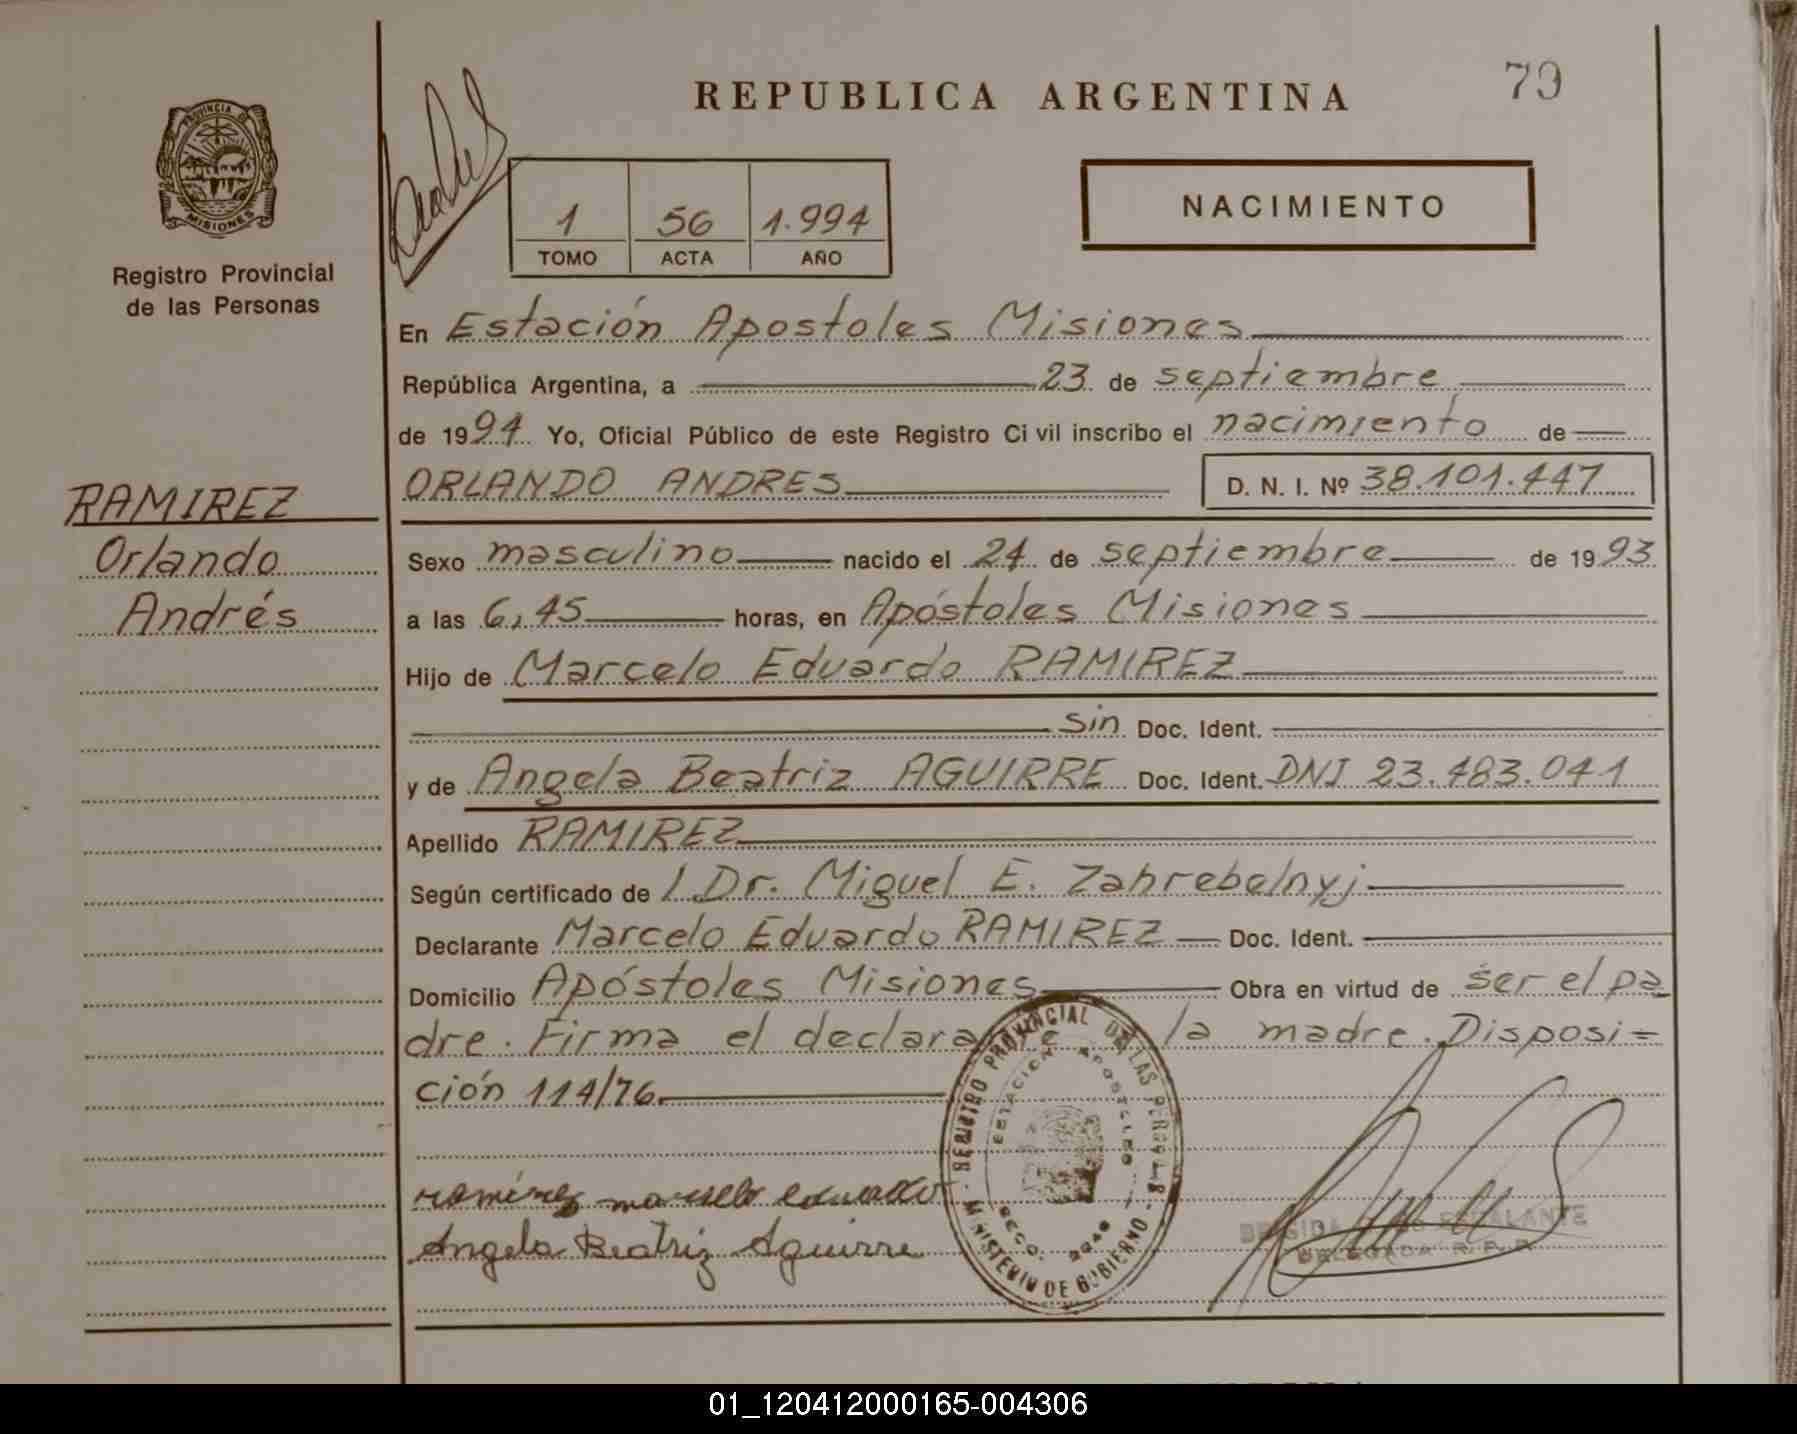 REPUBLICA ARGENTINA
79
PROVINCIA DE
MISIONES
Registro Provincial
de las Personas
1 56 1.994
TOMO ACTA AÑO
NACIMIENTO
En Estación Apostoles Misiones
República Argentina, a 23 de septiembre
de 1994 Yo, Oficial Público de este Registro Civil inscribo el nacimiento de
ORLANDO ANDRES D. N. I. Nº 38.101.447
RAMIREZ
Orlando
Andrés
Sexo masculino nacido el 24 de septiembre de 1993
a las 6,45 horas, en Apóstoles Misiones
Hijo de Marcelo Eduardo RAMIREZ
Sin Doc. Ident.
y de Angela Beatriz AGUIRRE Doc. Ident. DNI 23.483.041
Apellido RAMIREZ
Según certificado de l Dr. Miguel E. Zahrebelnyj
Declarante Marcelo Eduardo RAMIREZ Doc. Ident.
Domicilio Apóstoles Misiones Obra en virtud de ser el pa
dre. Firma el declarante la madre. Disposi=
ción 114/76.
REGISTRO PROVINCIAL DE LAS PERSONAS
MINISTERIO DE GOBIERNO
ESTACION APOSTOLES
ramirez marcelo eduardo
Angela Beatriz Aguirre
ESCALANTE
DELEGADA R. P. P.
01_120412000165-004306